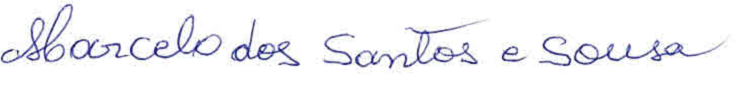 Marcelo dos Santos e Sousa